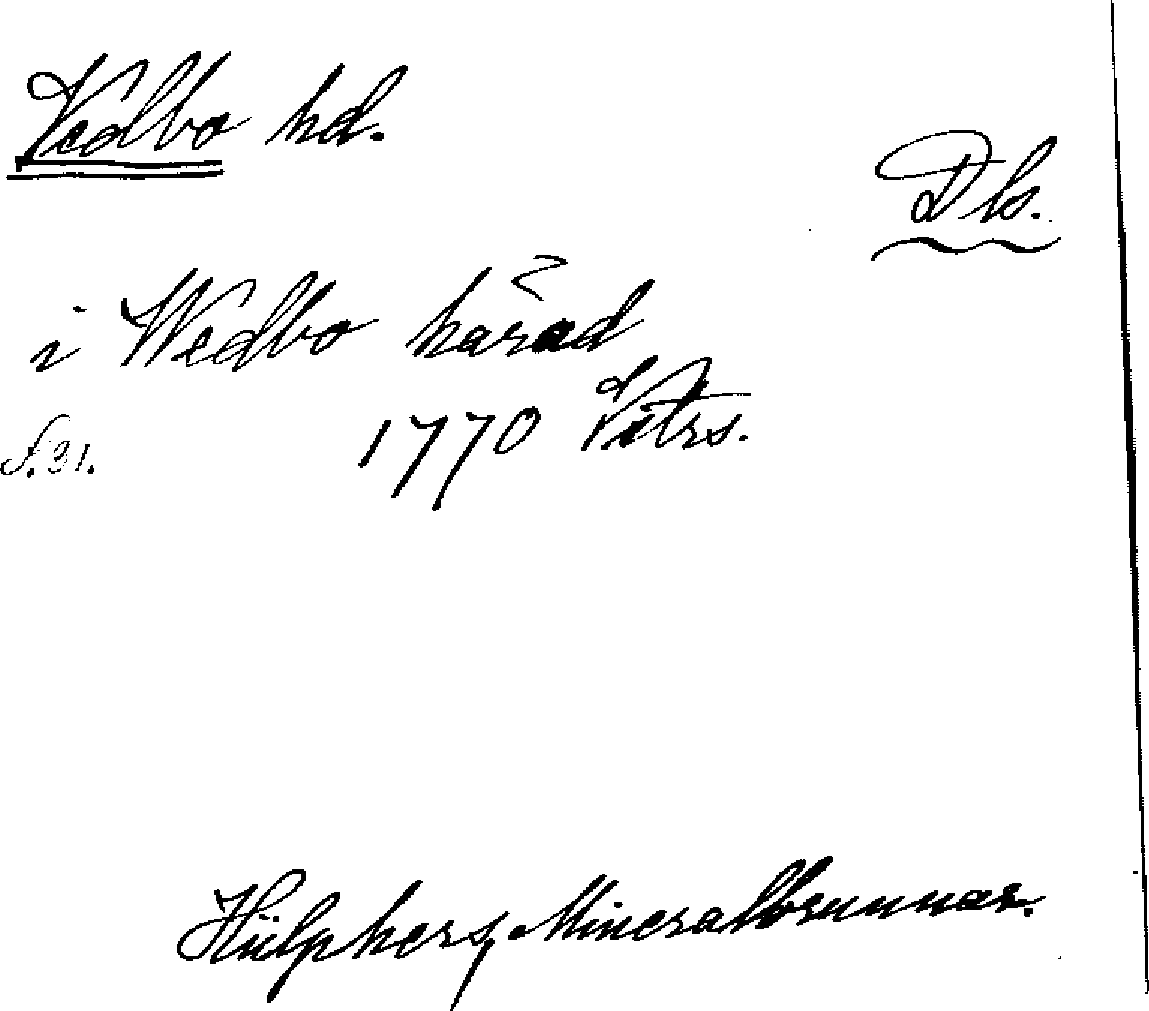 Vedbo hd.
Dls.
i Wedbo härad
s. 31. 1770 Vitrs.
Hülphers, Mineralbrunnar.